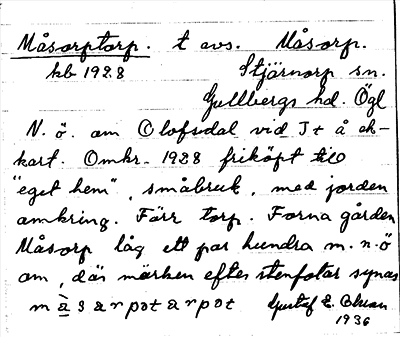 Måsorptorp. t avs. Måsorp.
kb 1928 Stjärnorp sn.
Gullbergs hd. Ögl
N. ö. om Olofsdal vid J + å ek-
kart. Omkr. 1928 friköpt till
"eget hem", småbruk, med jorden
omkring. Förr torp. Forna gården
Måsorp låg ett par hundra m. n. ö
om, där märken efter stenfotar synas
m à s a r p ɷ t a r p ɷ t Gustaf E.
1936